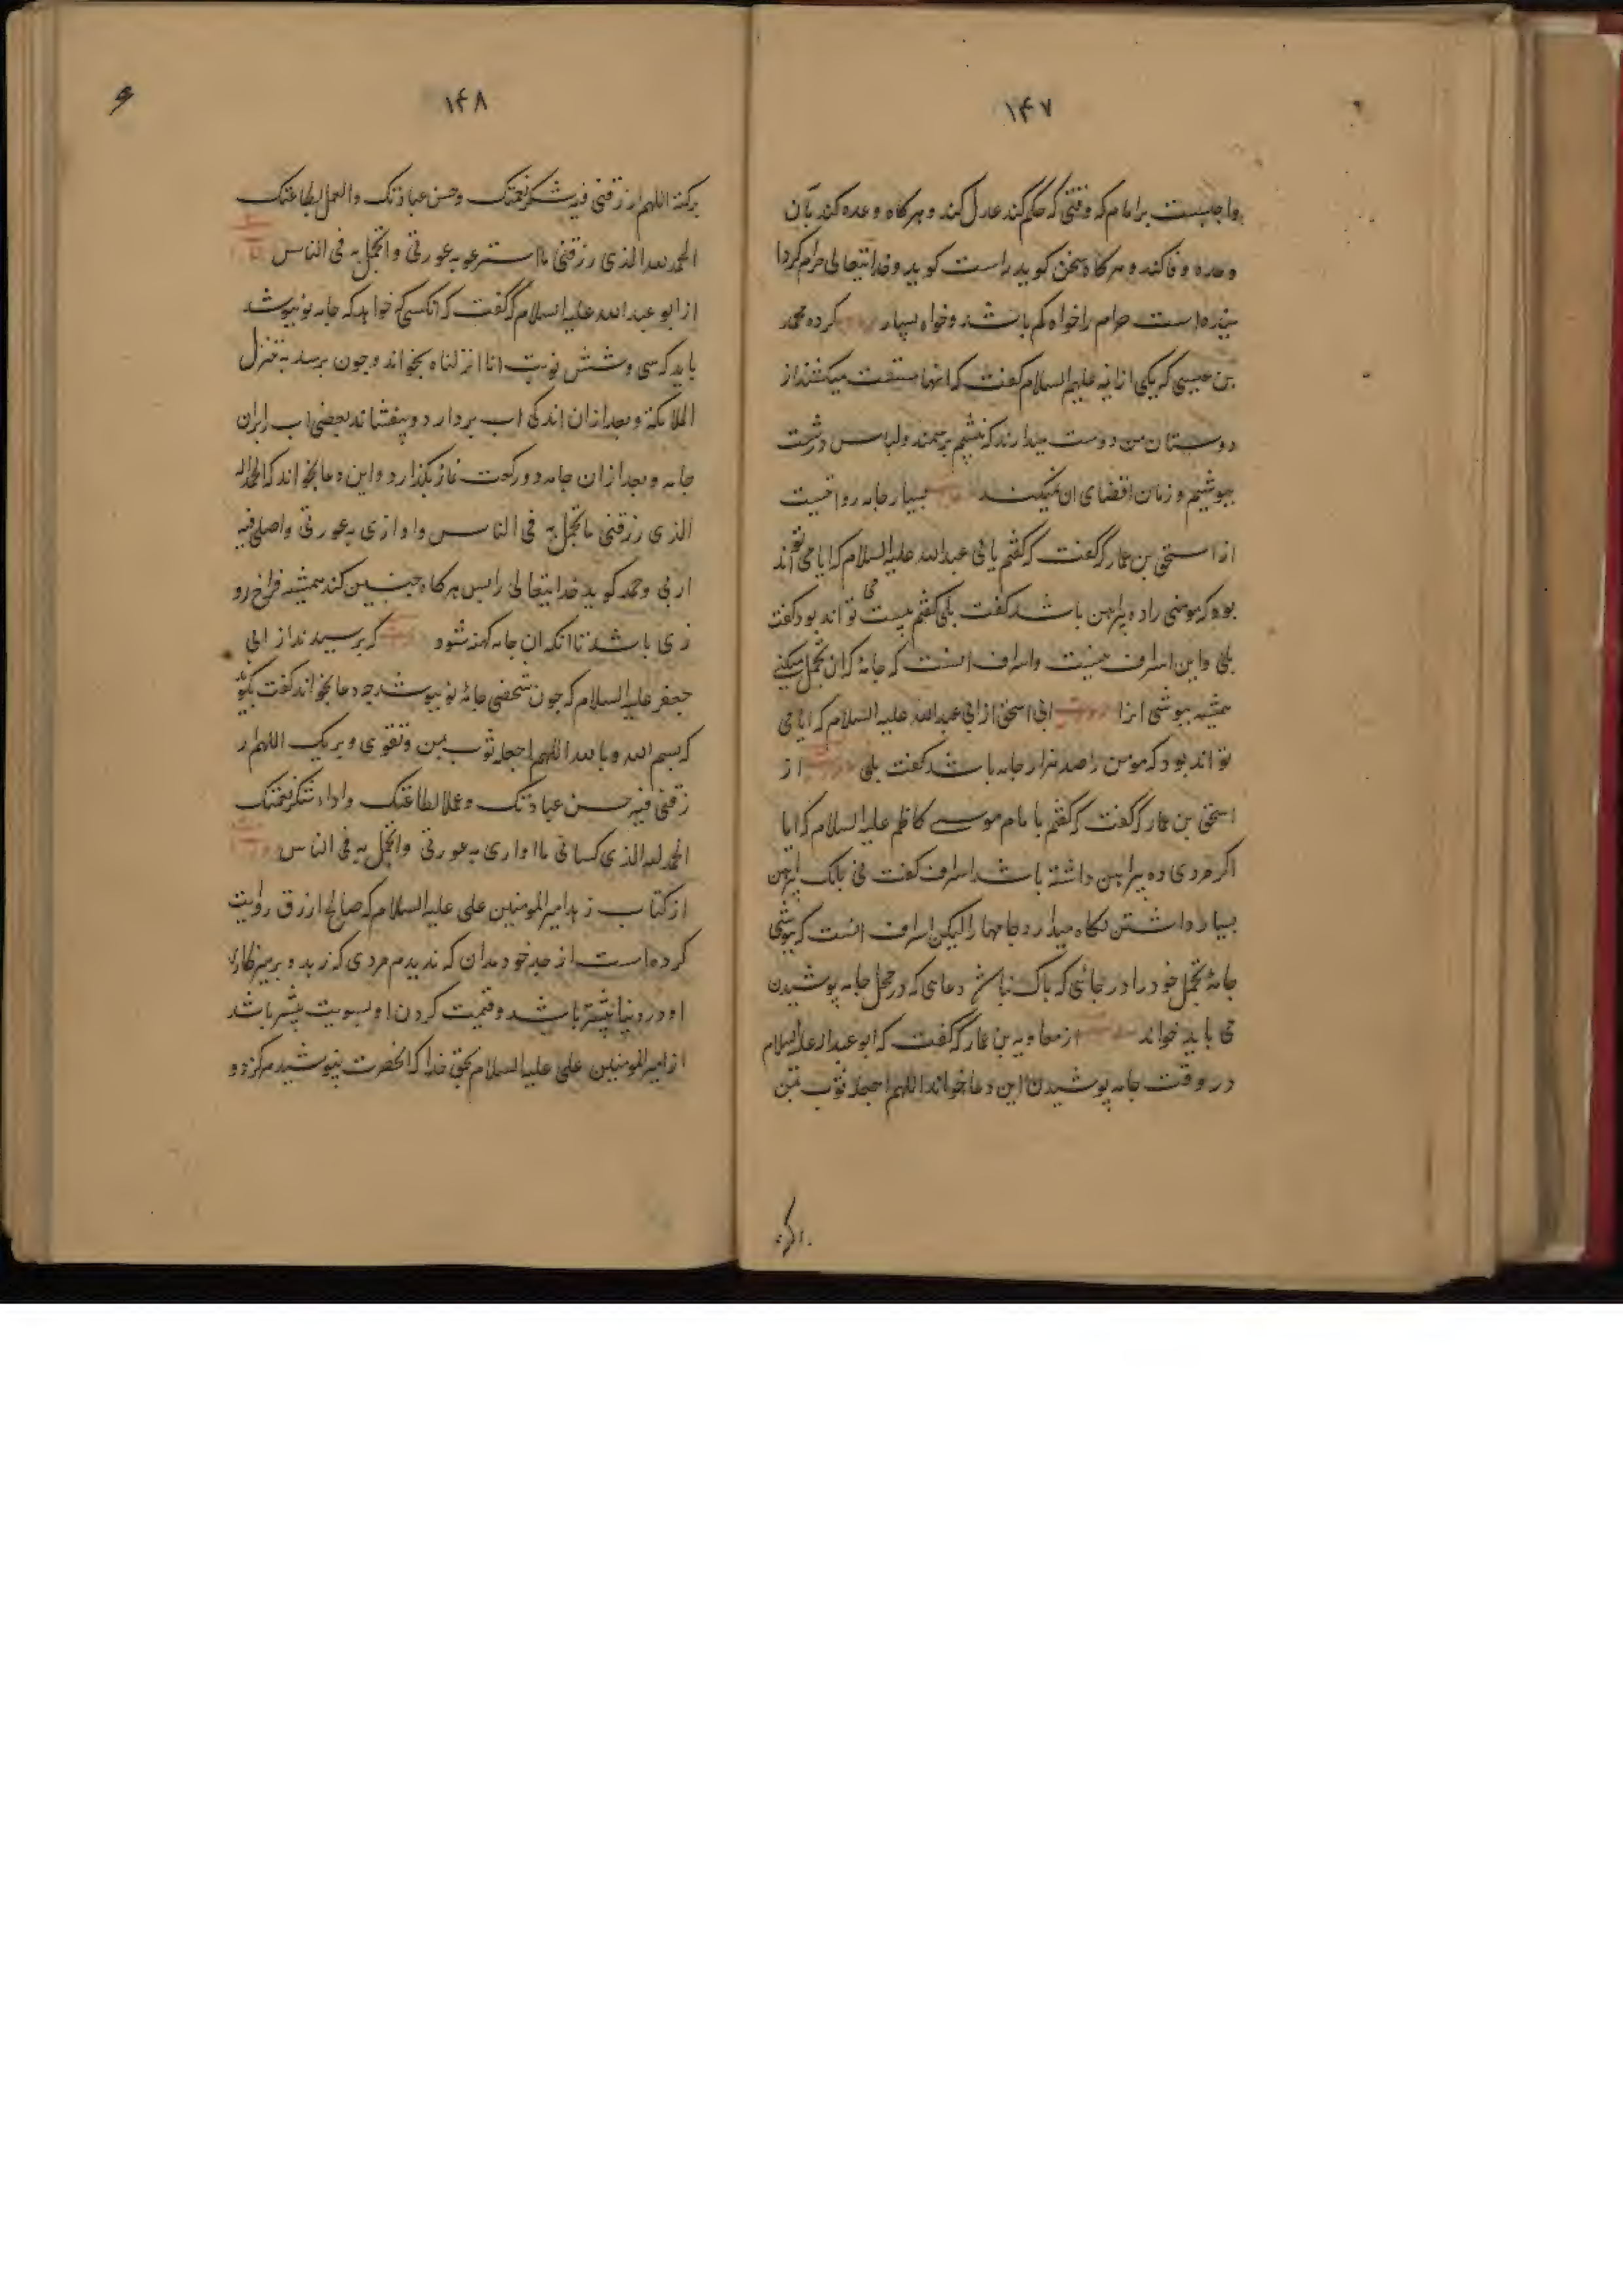 ۱۴۷
واجبست بر امام که وقتی که حکم کند عدل کند و هرکاه وعده کند بآن
وعده وفا کند و هرکاه سخن کوید راست کوید و خدایتعالی حرام کردا
نیده است حرام را خواه کم باشد و خواه بسیار کرده محمد
بن عیسی که یکی از ائمه علیهم السلام کفت که انها میکفتند از
دوستان من دوست میدارند که بنشینم بر نمد ولباس درشت
بپوشیم و زمان اقتضای ان نمیکند بسیار جامه
از اسحق بن عمار که کفت که کفتم بابی عبدالله علیه السلام که ایا می تواند
بود که مومنی را ده پیراهن باشد کفت بلی کفتم بیست می تواند بود کفت
بلی و این اسراف نیست و اسراف انست که جامهٔ که ان تجمل میکنی
همیشه بپوشی انرا ابی اسحق از ابی عبدالله علیه السلام که ایا می
تواند بود که مومن را صد هزار جامه باشد کفت بلی از
اسحق بن عمار که کفت که کفتم با امام موسی کاظم علیه السلام که ایا
اکر مردی ده پیراهن داشته باشد اسراف کفت نی بلکه پیراهن
بسیار داشتن نکاه میدارد جامها را لیکن اسراف انست که بپوشی
جامهٔ تجمل خود را در جائی که پاک نباشد دعای که در محل جامه پوشیدن
می باید خواند از معاویه بن عمار که کفت که ابو عبدالله علیه السلام
در وقت جامه پوشیدن این دعا خواند اللهم اجعله ثوب یمن
۱۴۸
برکة اللهم ارزقنی فیه شکر نعمتک وحسن عبادتک والعمل بطاعتک
الحمد لله الذی رزقنی ما استر به عورتی واتجمل به فی الناس
از ابو عبدالله علیه السلام که کفت که انکسی که خواهد که جامه نو بپوشد
باید که سی و شش نوبت انا انزلناه بخواند و چون برسد به تنزل
الملائکة و بعد از ان اندکی اب بردارد و بیفشاند بعضی اب را بران
جامه و بعد از ان جامه دو رکعت نماز بکذارد و این دعا بخواند که الحمد لله
الذی رزقنی ما تجمل به فی الناس و اواری به عورتی و اصلی فیه
لربی وحمد کوید خدایتعالی را پس هرکاه چنین کند همیشه فراخ رو
زی باشد تا انکه ان جامه کهنه شود که پرسیدند از ابی
جعفر علیه السلام که چون شخصی جامهٔ نو بپوشد چه دعا بخواند کفت بکوید
که بسم الله و بالله اللهم اجعله ثوب یمن وتقوی وبرکة اللهم ار
زقنی فیه حسن عبادتک وعملا لطاعتک واداء شکر نعمتک
الحمد لله الذی کسانی ما اواری به عورتی واتجمل به فی الناس
از کتاب زهد امیر المومنین علی علیه السلام که صالح ازرق روایت
کرده است از جد خود که ندیدم مردی که زهد و پرهیزکاری
او در دنیا بیشتر باشد و قسمت کردن او بسویت بیشتر باشد
از امیر المومنین علی علیه السلام بحق خدا که انحضرت نپوشید هرکز دو